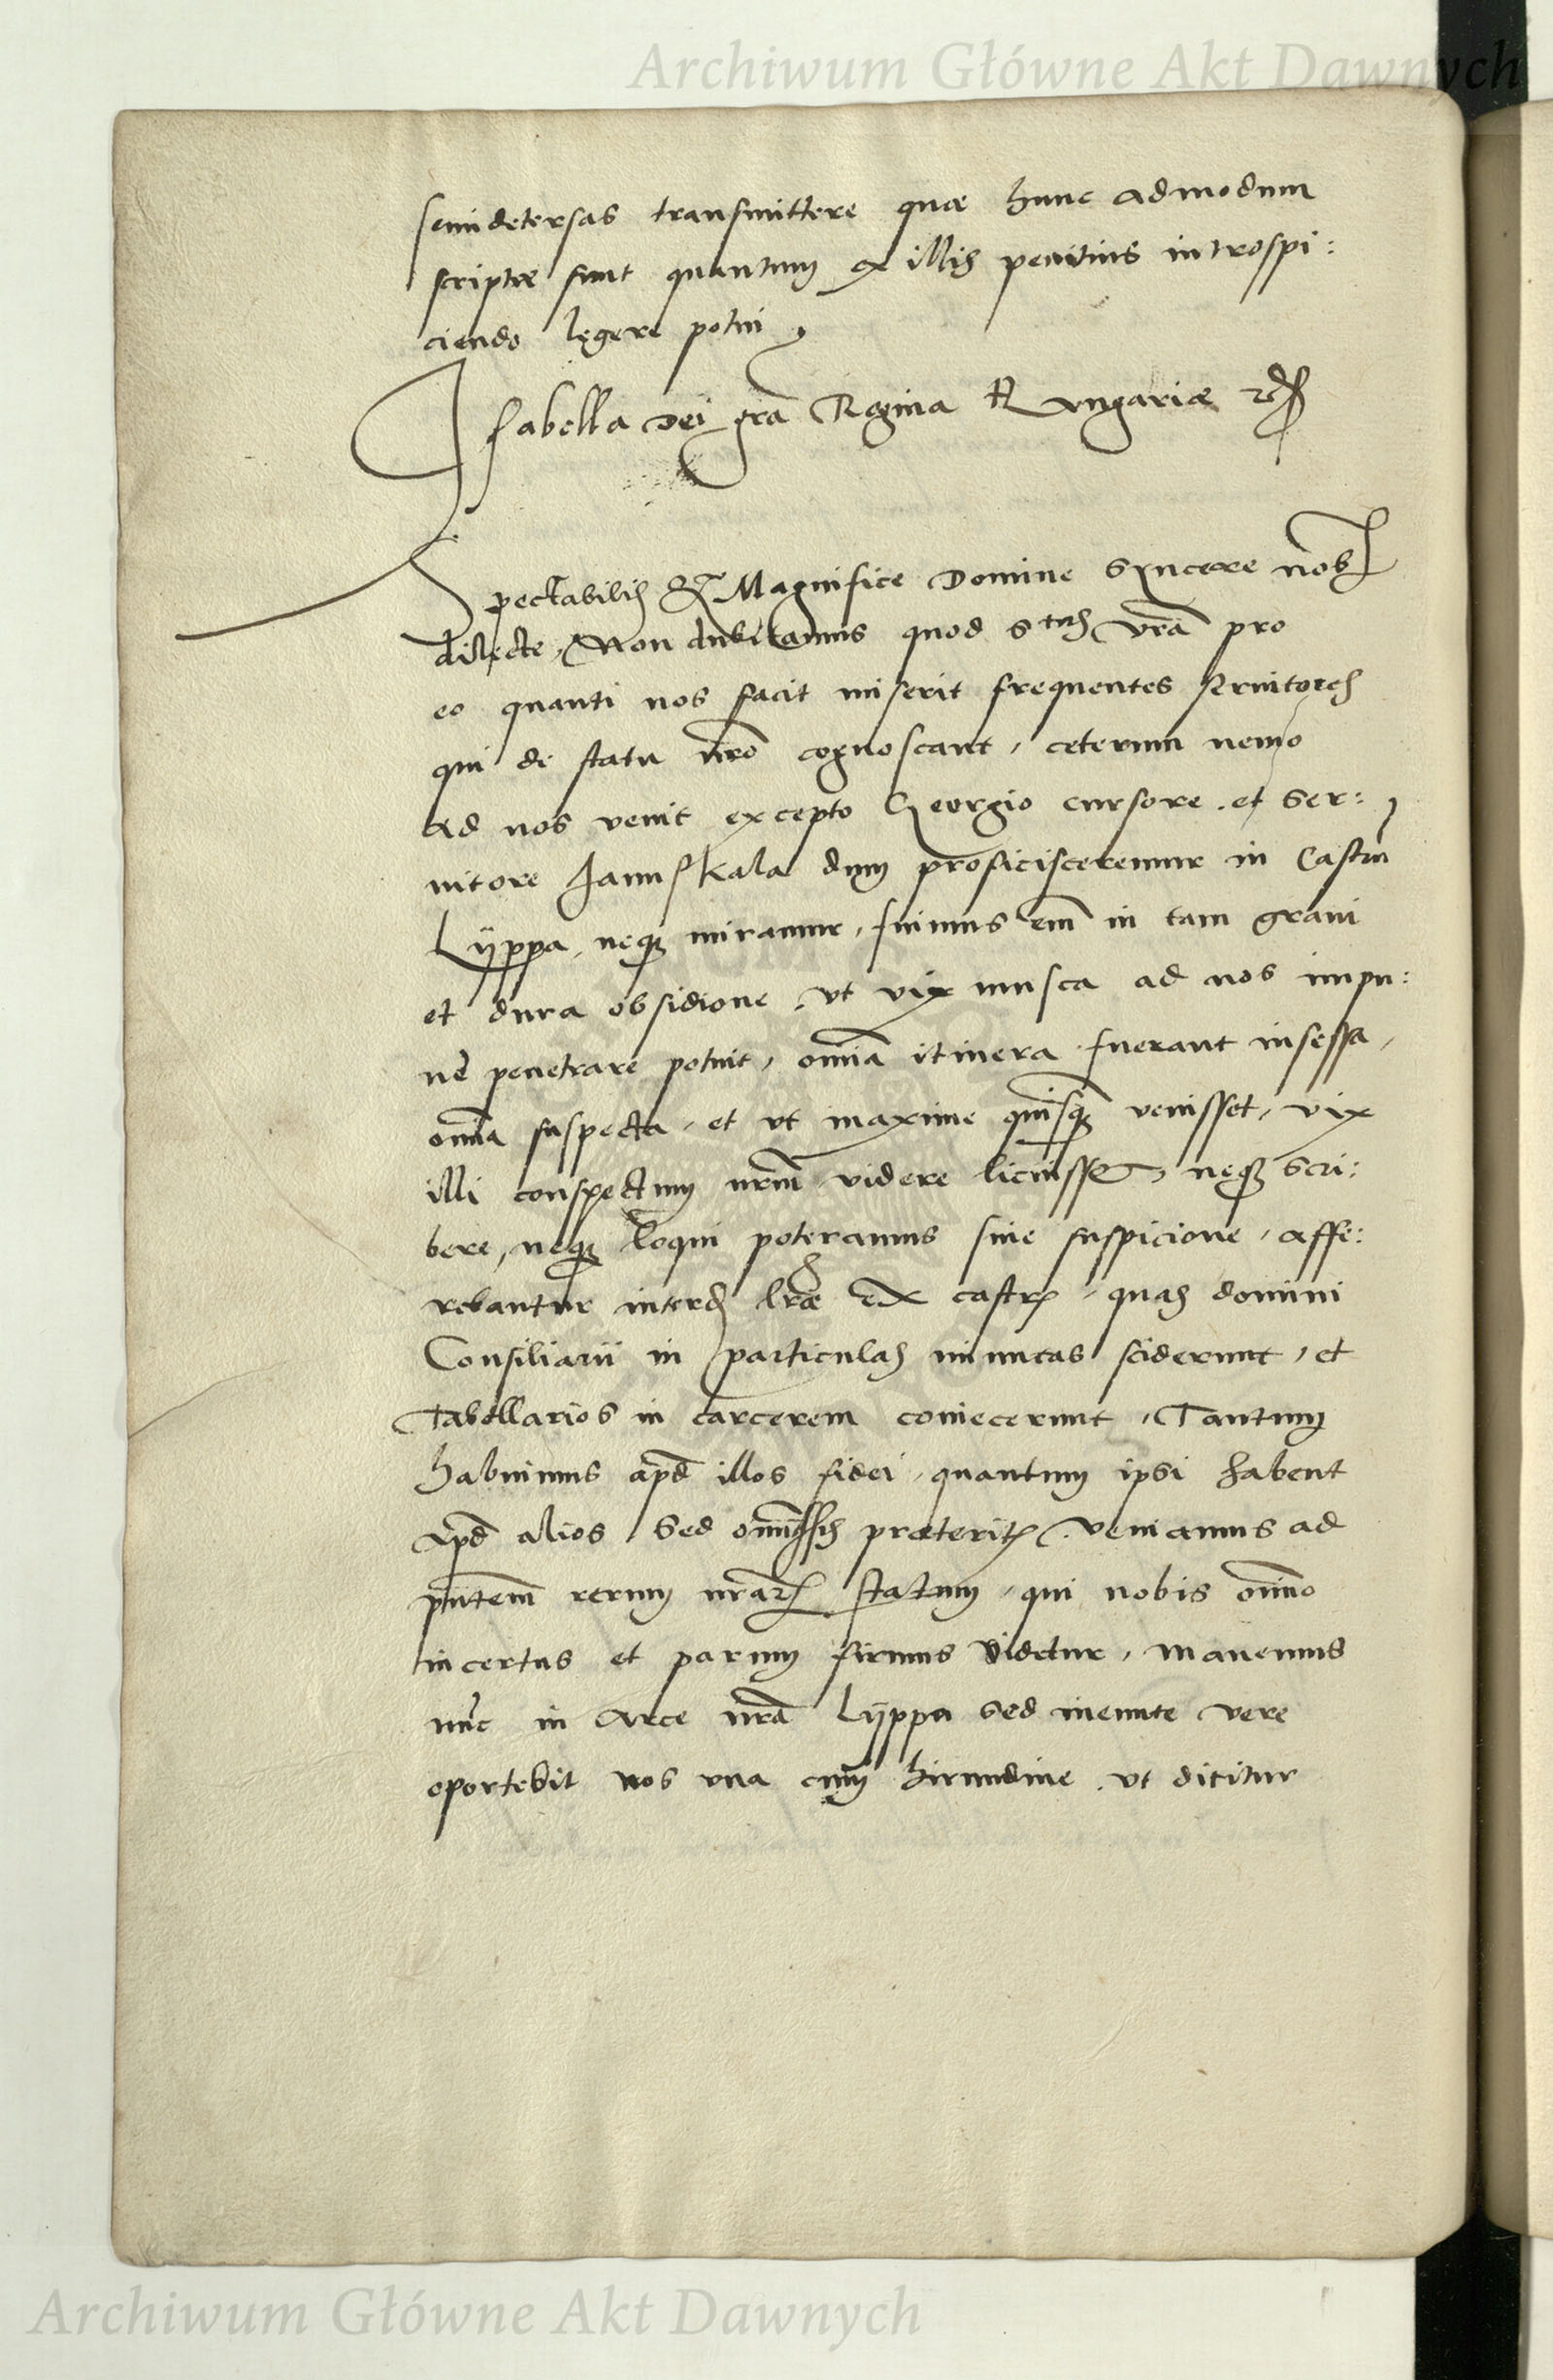 Archiwum Główne Akt Dawnych
semidetersas transmittere quae hunc admodum
scriptae sunt quantum ex illis penitius introspi:
ciendo legere potui,
Isabella dei gra Regina Hungariae etc
Spectabilis et Magnifice Domine syncere nob
dilecte, Non dubitamus quod Stas vra pro
eo quanti nos facit miserit frequentes servitores
qui de statu nro cognoscant, ceterum nemo
ad nos venit excepto Georgio cursore et ser:
vitore Januskala dum proficisceremur in Castru
Lÿppa, neq miramur, fuimus em in tam gravi
et dura obsidione, vt vix musca ad nos impu:
ne penetrare potuit, omia itinera fuerant insessa,
omia suspecta, et vt maxime quisq venisset, vix
illi conspectum nrm videre licuisset neq scri:
bere, neq loqui poteramus sine suspicione, affe:
rebantur interd lrae ex castris, quas domini
Consiliarii in particulas minutas sciderunt, et
Tabellarios in carcerem coniecerunt, Tantum
habuimus apd illos fidei, quantum ipsi habent
apd alios, Sed omissis praeteritis, veniamus ad
pntem rerum nrar statum, qui nobis omino
incertus et parum firmus videtur, manemus
nuc in Arce nra Lÿppa sed ineunte vere
oportebit nos vna cum hirundine, vt dicitur
Archiwum Główne Akt Dawnych